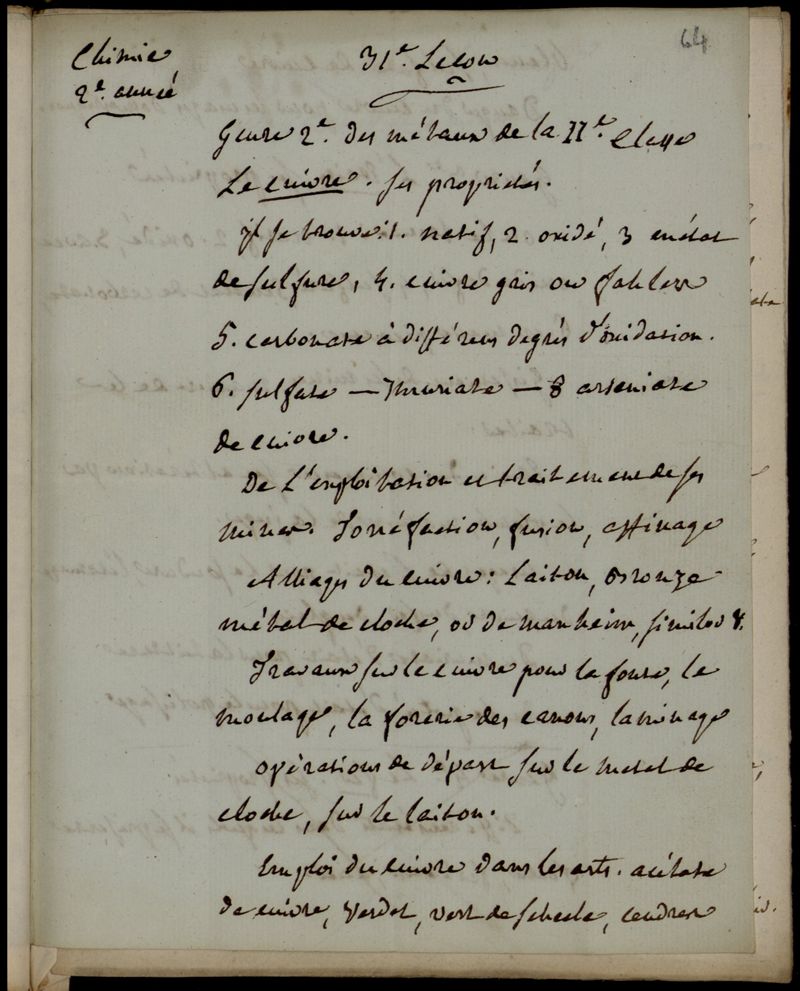 64
Chimie
2e. année
31e. Lecon
Genre 2e. des métaux de la IIe. Classe
Le cuivre. ses proprietés.
il se trouve: 1. natif, 2. oxidé, 3 en état
de sulfure, 4. cuivre gris ou fahlerz
5. carbonate à différens degrés d'oxidation.
6. sulfate — 7 muriate — 8 arseniate
de cuivre.
De L'exploitation et traitement de ses
mines. Torréfaction, fusion, affinage
Alliages du cuivre: Laiton, Bronze
métal de cloche, or de manheim, similor &.
Travaux sur le cuivre pour la fonte, le
moulage, la forerie des canons, laminage
opérations de départ sur le metal de
cloche, sur le laiton.
Emploi du cuivre dans les arts. acétate
de cuivre, Verdet, vert de scheele, cendres